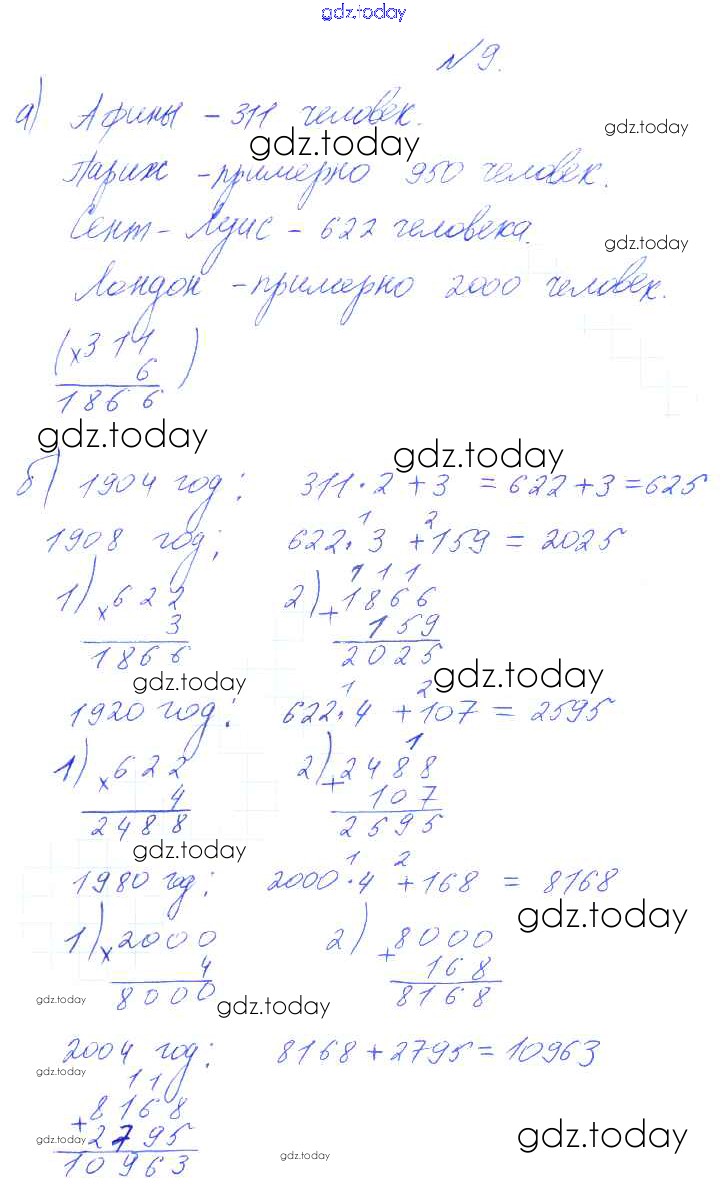 gdz.today
№9.
а) Афины - 311 человек.
gdz.today
gdz.today
Париж - примерно 950 человек.
Сент-Луис - 622 человека.
gdz.today
Лондон - примерно 2000 человек.
( × 311
6 )
1866
gdz.today
gdz.today
б) 1904 год: 311·2+3 = 622+3=625
1 2
1908 год: 622·3 +159 = 2025
1 1 1
1) × 622 2) + 1866
3 159
1866 2025
gdz.today
gdz.today
1 2
1920 год: 622·4 +107 = 2595
1
1) × 622 2) + 2488
4 107
2488 2595
gdz.today
1 2
1980 год: 2000·4 +168 = 8168
gdz.today
1) × 2000 2) + 8000
4 168
8000 8168
gdz.today
gdz.today
2004 год: 8168+2795=10963
gdz.today
1 1
+ 8168
2795
gdz.today
gdz.today
10963
gdz.today